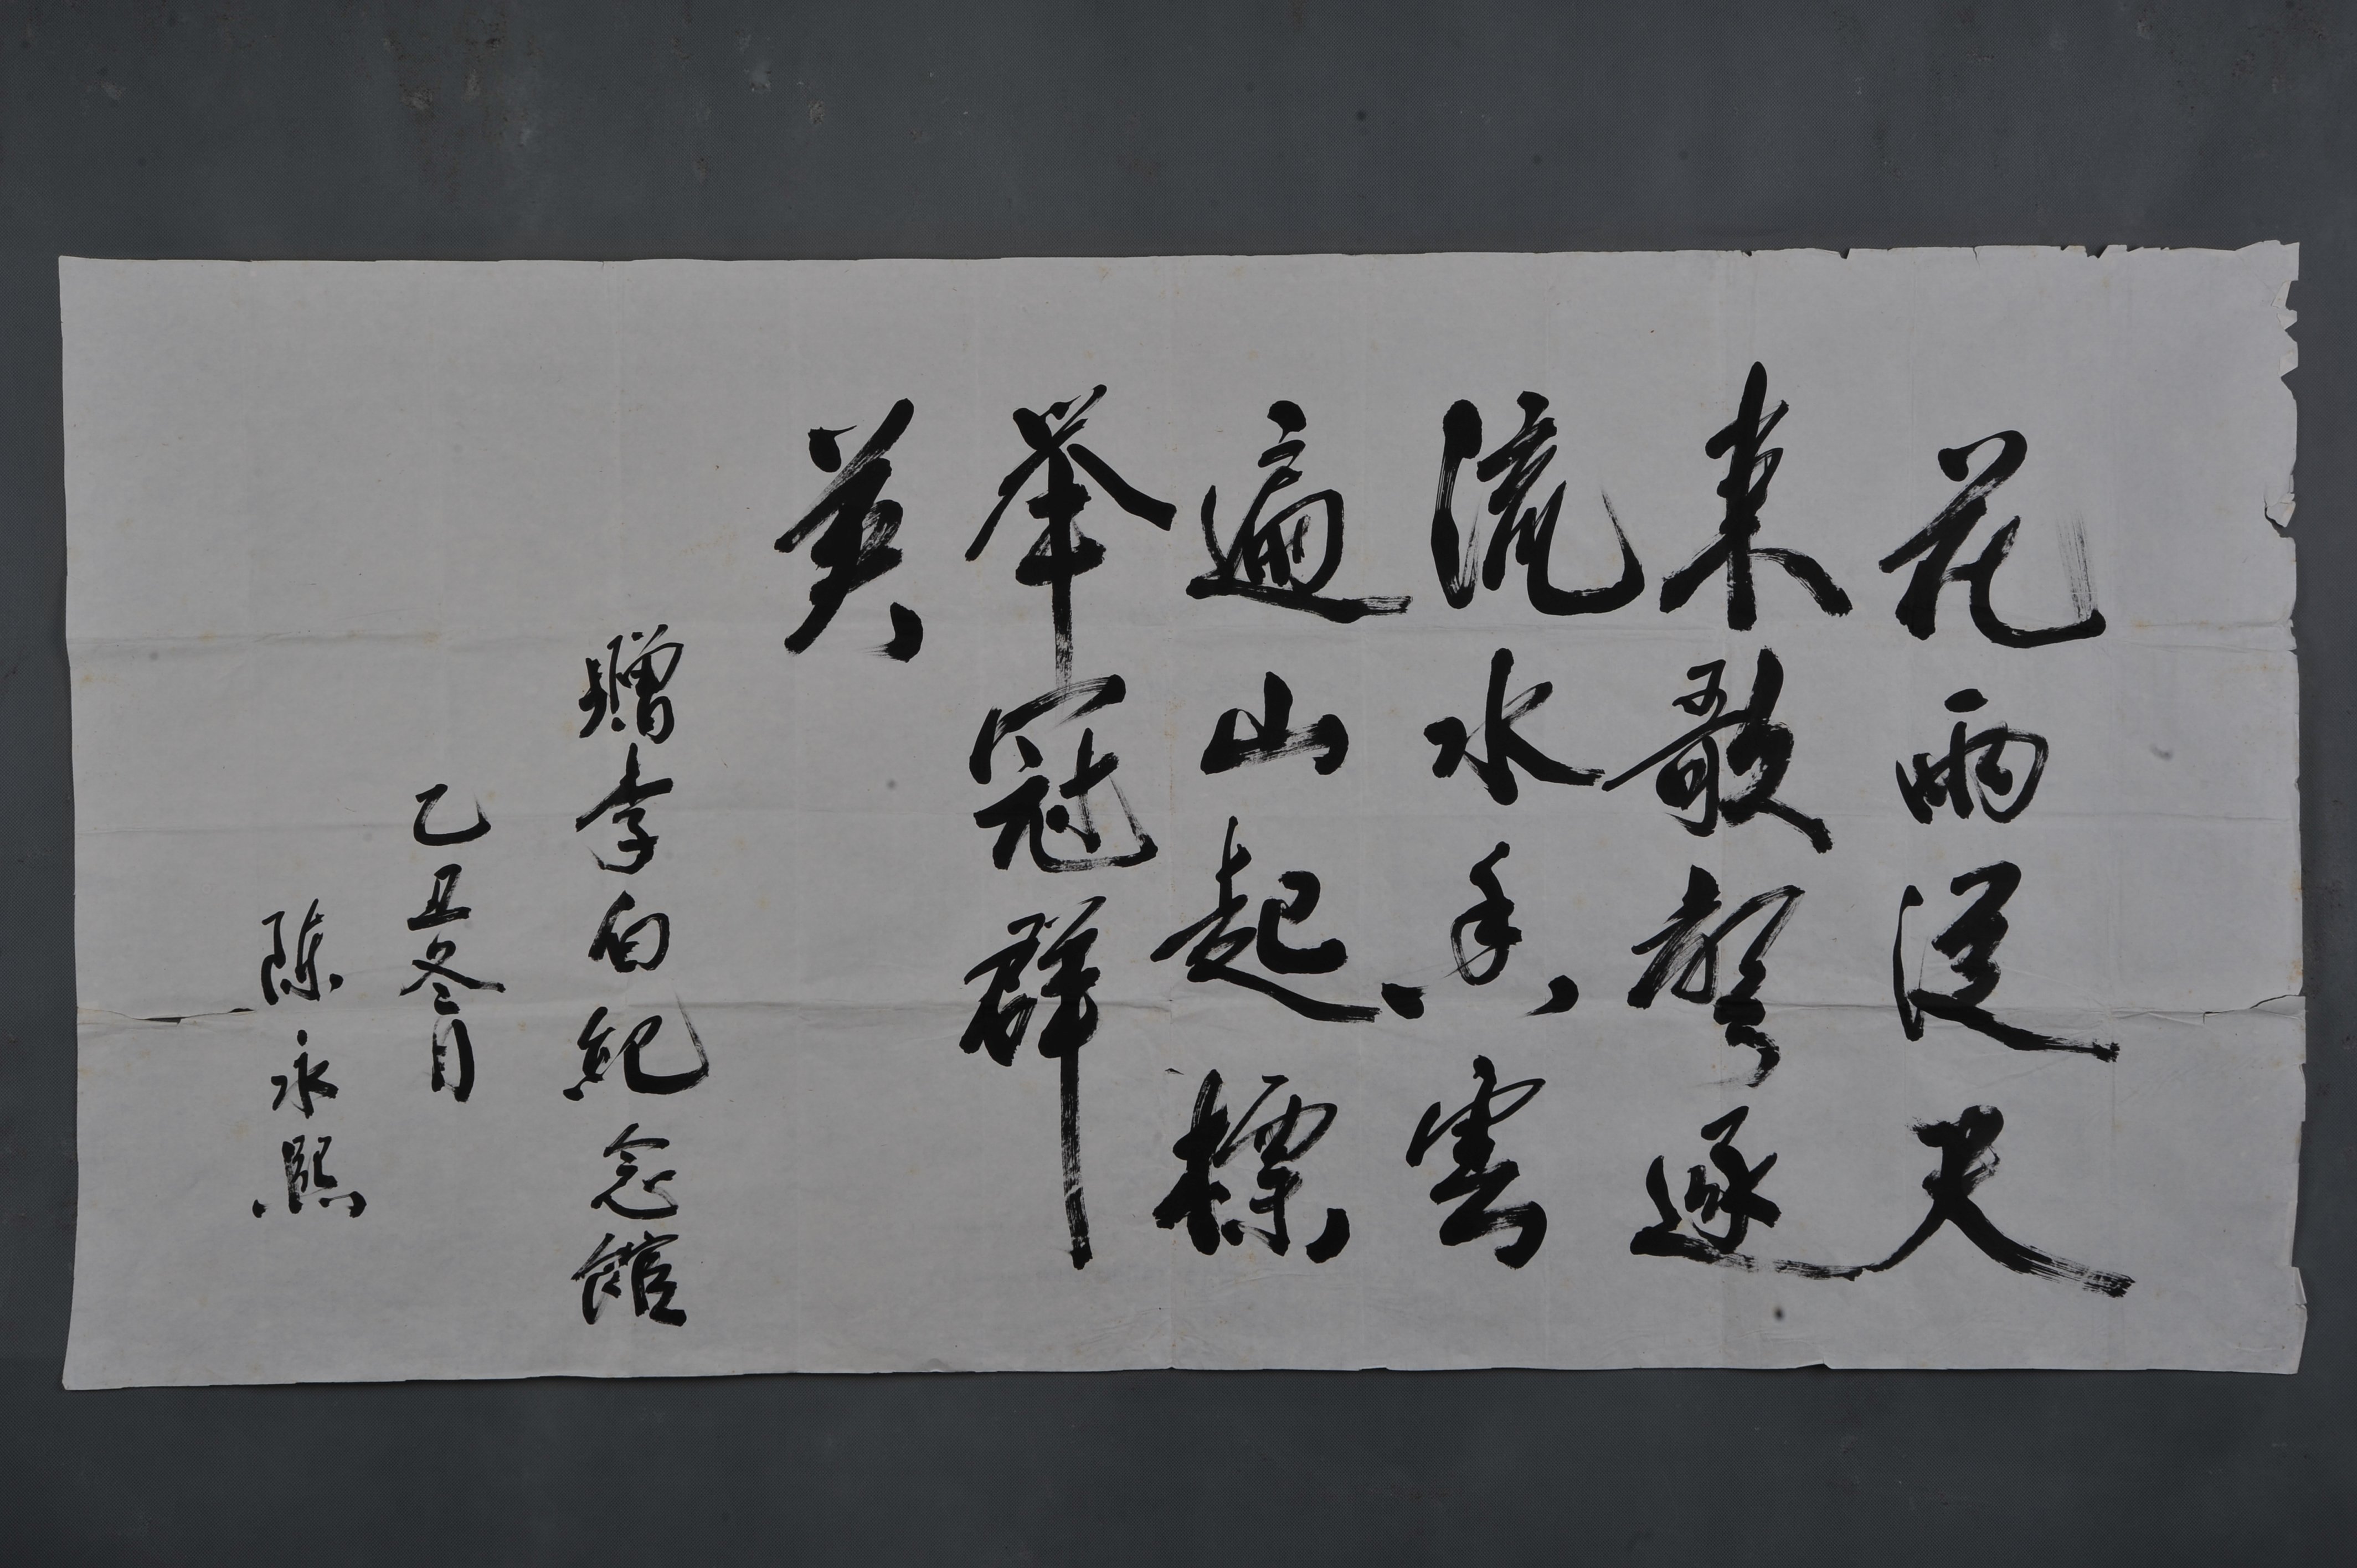 花雨從天
来歌聲逐
流水香雲
遍山起標
举冠群
英
贈李白紀念館
乙丑冬月
陳永熙